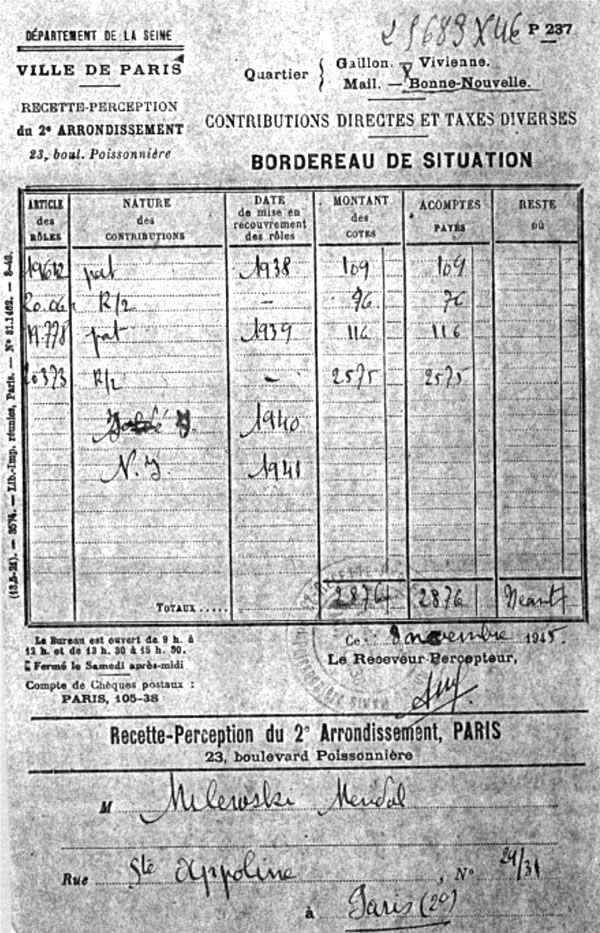 DÉPARTEMENT DE LA SEINE
VILLE DE PARIS
RECETTE-PERCEPTION
du 2e ARRONDISSEMENT
23, boul. Poissonnière
P 237
Quartier { Gaillon. Vivienne.
Mail. — Bonne-Nouvelle.
CONTRIBUTIONS DIRECTES ET TAXES DIVERSES
BORDEREAU DE SITUATION
ARTICLE des RÔLES
NATURE des CONTRIBUTIONS
DATE de mise en recouvrement des rôles
MONTANT des COTES
ACOMPTES PAYÉS
RESTE DÛ
pat 1938 109 109
R/2 — 76 76
19.778 pat 1939 116 116
20373 R/2 — 2575 2575
1940
N. J. 1941
TOTAUX ..... 2876 2876 Neant
(12-5-21). — 3574. — Lib.-Imp. réunies, Paris. — No 81.1462. — 8-40.
Le Bureau est ouvert de 9 h. à
12 h. et de 13 h. 30 à 15 h. 30.
Fermé le Samedi après-midi
Compte de Chèques postaux :
PARIS, 105-38
Ce : 8 novembre 1945.
Le Receveur-Percepteur,
Recette-Perception du 2e Arrondissement, PARIS
23, boulevard Poissonnière
M Milewski Mendel
Rue Ste Appoline, No 29/31
à Paris (2e)